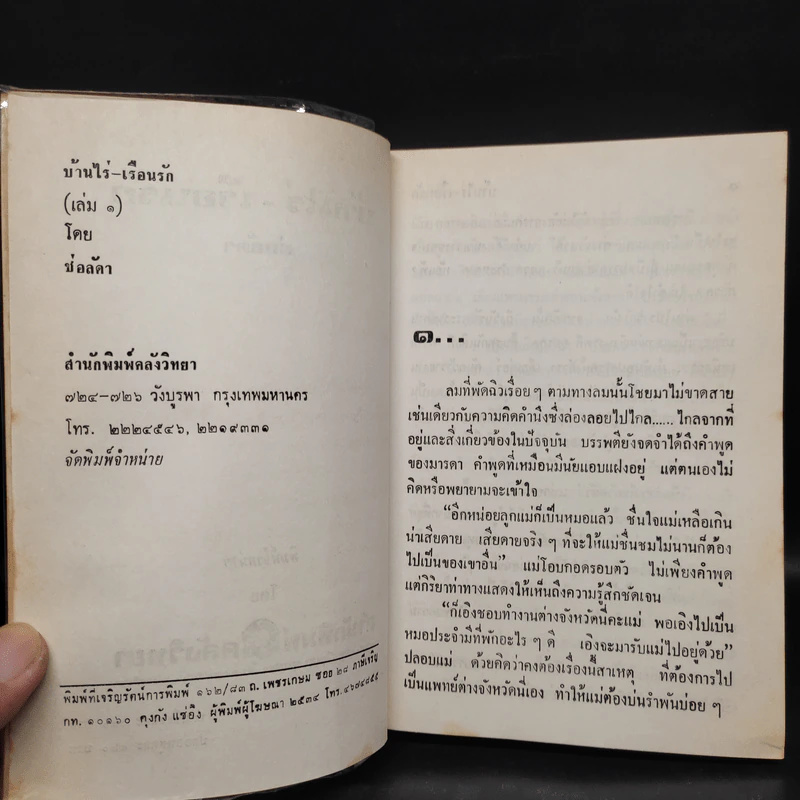 บ้านไร่-เรือนรัก
(เล่ม ๑)
โดย
ช่อลัดา
สำนักพิมพ์คลังวิทยา
๗๒๔-๗๒๖ วังบูรพา กรุงเทพมหานคร
โทร. ๒๒๒๔๕๔๖, ๒๒๑๙๓๓๑
จัดพิมพ์จำหน่าย
พิมพ์ที่เจริญรัตน์การพิมพ์ ๑๖๒/๘๓ ถ. เพชรเกษม ซอย ๒๘ ภาษีเจริญ
กท. ๑๐๑๖๐ คุงกัง แซ่อึง ผู้พิมพ์ผู้โฆษณา ๒๕๓๔ โทร. ๔๖๗๔๘๕๕
๑...
ลมที่พัดฉิวเรื่อย ๆ ตามทางลมนั้นโชยมาไม่ขาดสาย
เช่นเดียวกับความคิดคำนึงซึ่งล่องลอยไปไกล...... ไกลจากที่
อยู่และสิ่งเกี่ยวข้องในปัจจุบัน บรรพตียังจดจำได้ถึงคำพูด
ของมารดา คำพูดที่เหมือนมีนัยแอบแฝงอยู่ แต่ตนเองไม่
คิดหรือพยายามจะเข้าใจ
“อีกหน่อยลูกแม่ก็เป็นหมอแล้ว ชื่นใจแม่เหลือเกิน
น่าเสียดาย เสียดายจริง ๆ ที่จะให้แม่ชื่นชมไม่นานก็ต้อง
ไปเป็นของเขาอื่น” แม่โอบกอดรอบตัว ไม่เพียงคำพูด
แต่กิริยาท่าทางแสดงให้เห็นถึงความรู้สึกชัดเจน
“ก็เอิงชอบทำงานต่างจังหวัดนี่คะแม่ พอเอิงไปเป็น
หมอประจำมีที่พักอะไร ๆ ดี เอิงจะมารับแม่ไปอยู่ด้วย”
ปลอบแม่ ด้วยคิดว่าคงต้องเรื่องนี้สาเหตุ ที่ต้องการไป
เป็นแพทย์ต่างจังหวัดนี่เอง ทำให้แม่ต้องบ่นรำพันบ่อย ๆ